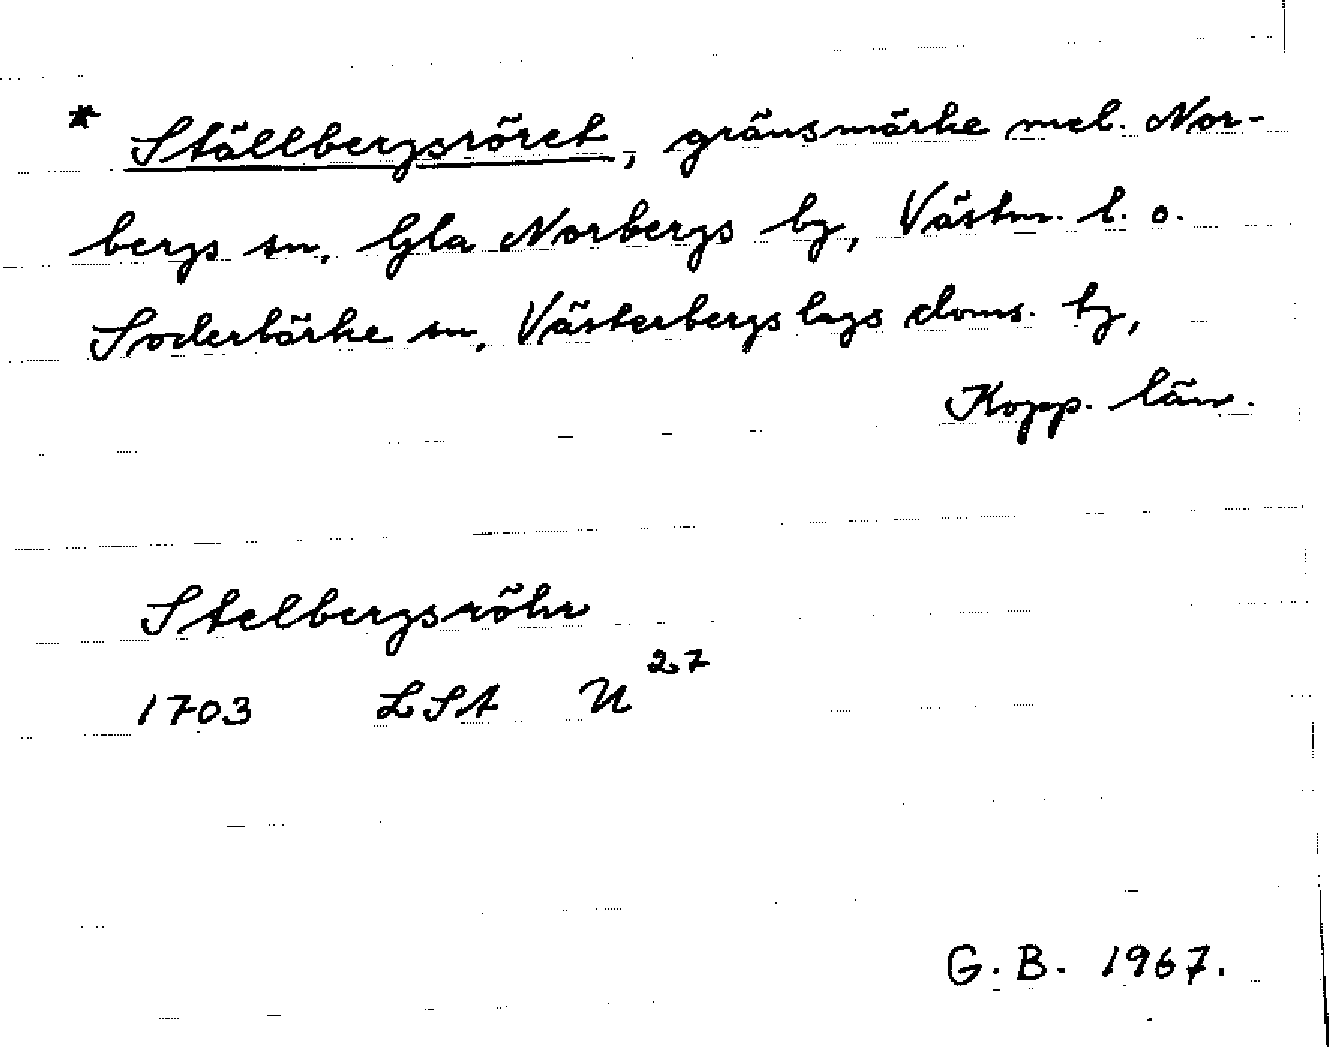 * Ställbergsröret, gränsmärke mel. Nor-
bergs sn, Gla Norbergs bg, Västm. l. o.
Söderbärke sn, Västerbergslags doms. bg,
Kopp. län.
Stelbergsröhr
1703 LSA U 27
G. B. 1967.